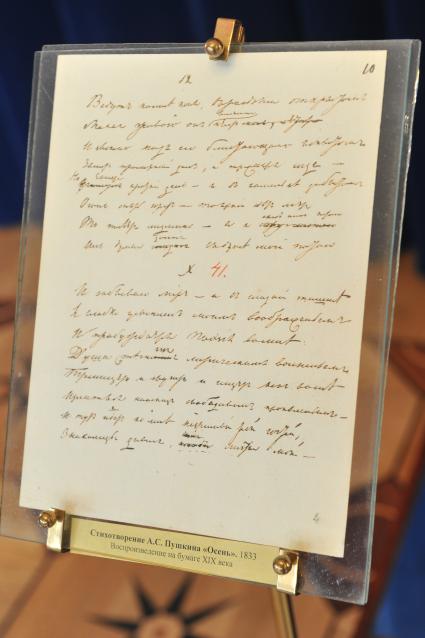 10
IX
Ведут ко мне коня, в раздолии открытом
Махая гривой он
И звонко под его блистающим копытом
Звенит промерзлый дол, и трескается лед —
день — и в камельке забытом
Огонь опять горит — то яркий свет лиет
То тлеет медленно — а я
Иль думы в душе моей питаю
X 41.
И забываю мир — и в сладкой тишине
Я сладко усыплен моим воображеньем
И пробуждается Поэзия во мне:
Душа стесняется лирическим волненьем
Трепещет и звучит и ищет как во сне
Излиться наконец свободным проявленьем —
И тут идет ко мне незримый рой гостей,
Знакомцы мечты моей —
Стихотворение А.С. Пушкина «Осень». 1833
Воспроизведение на бумаге XIX века